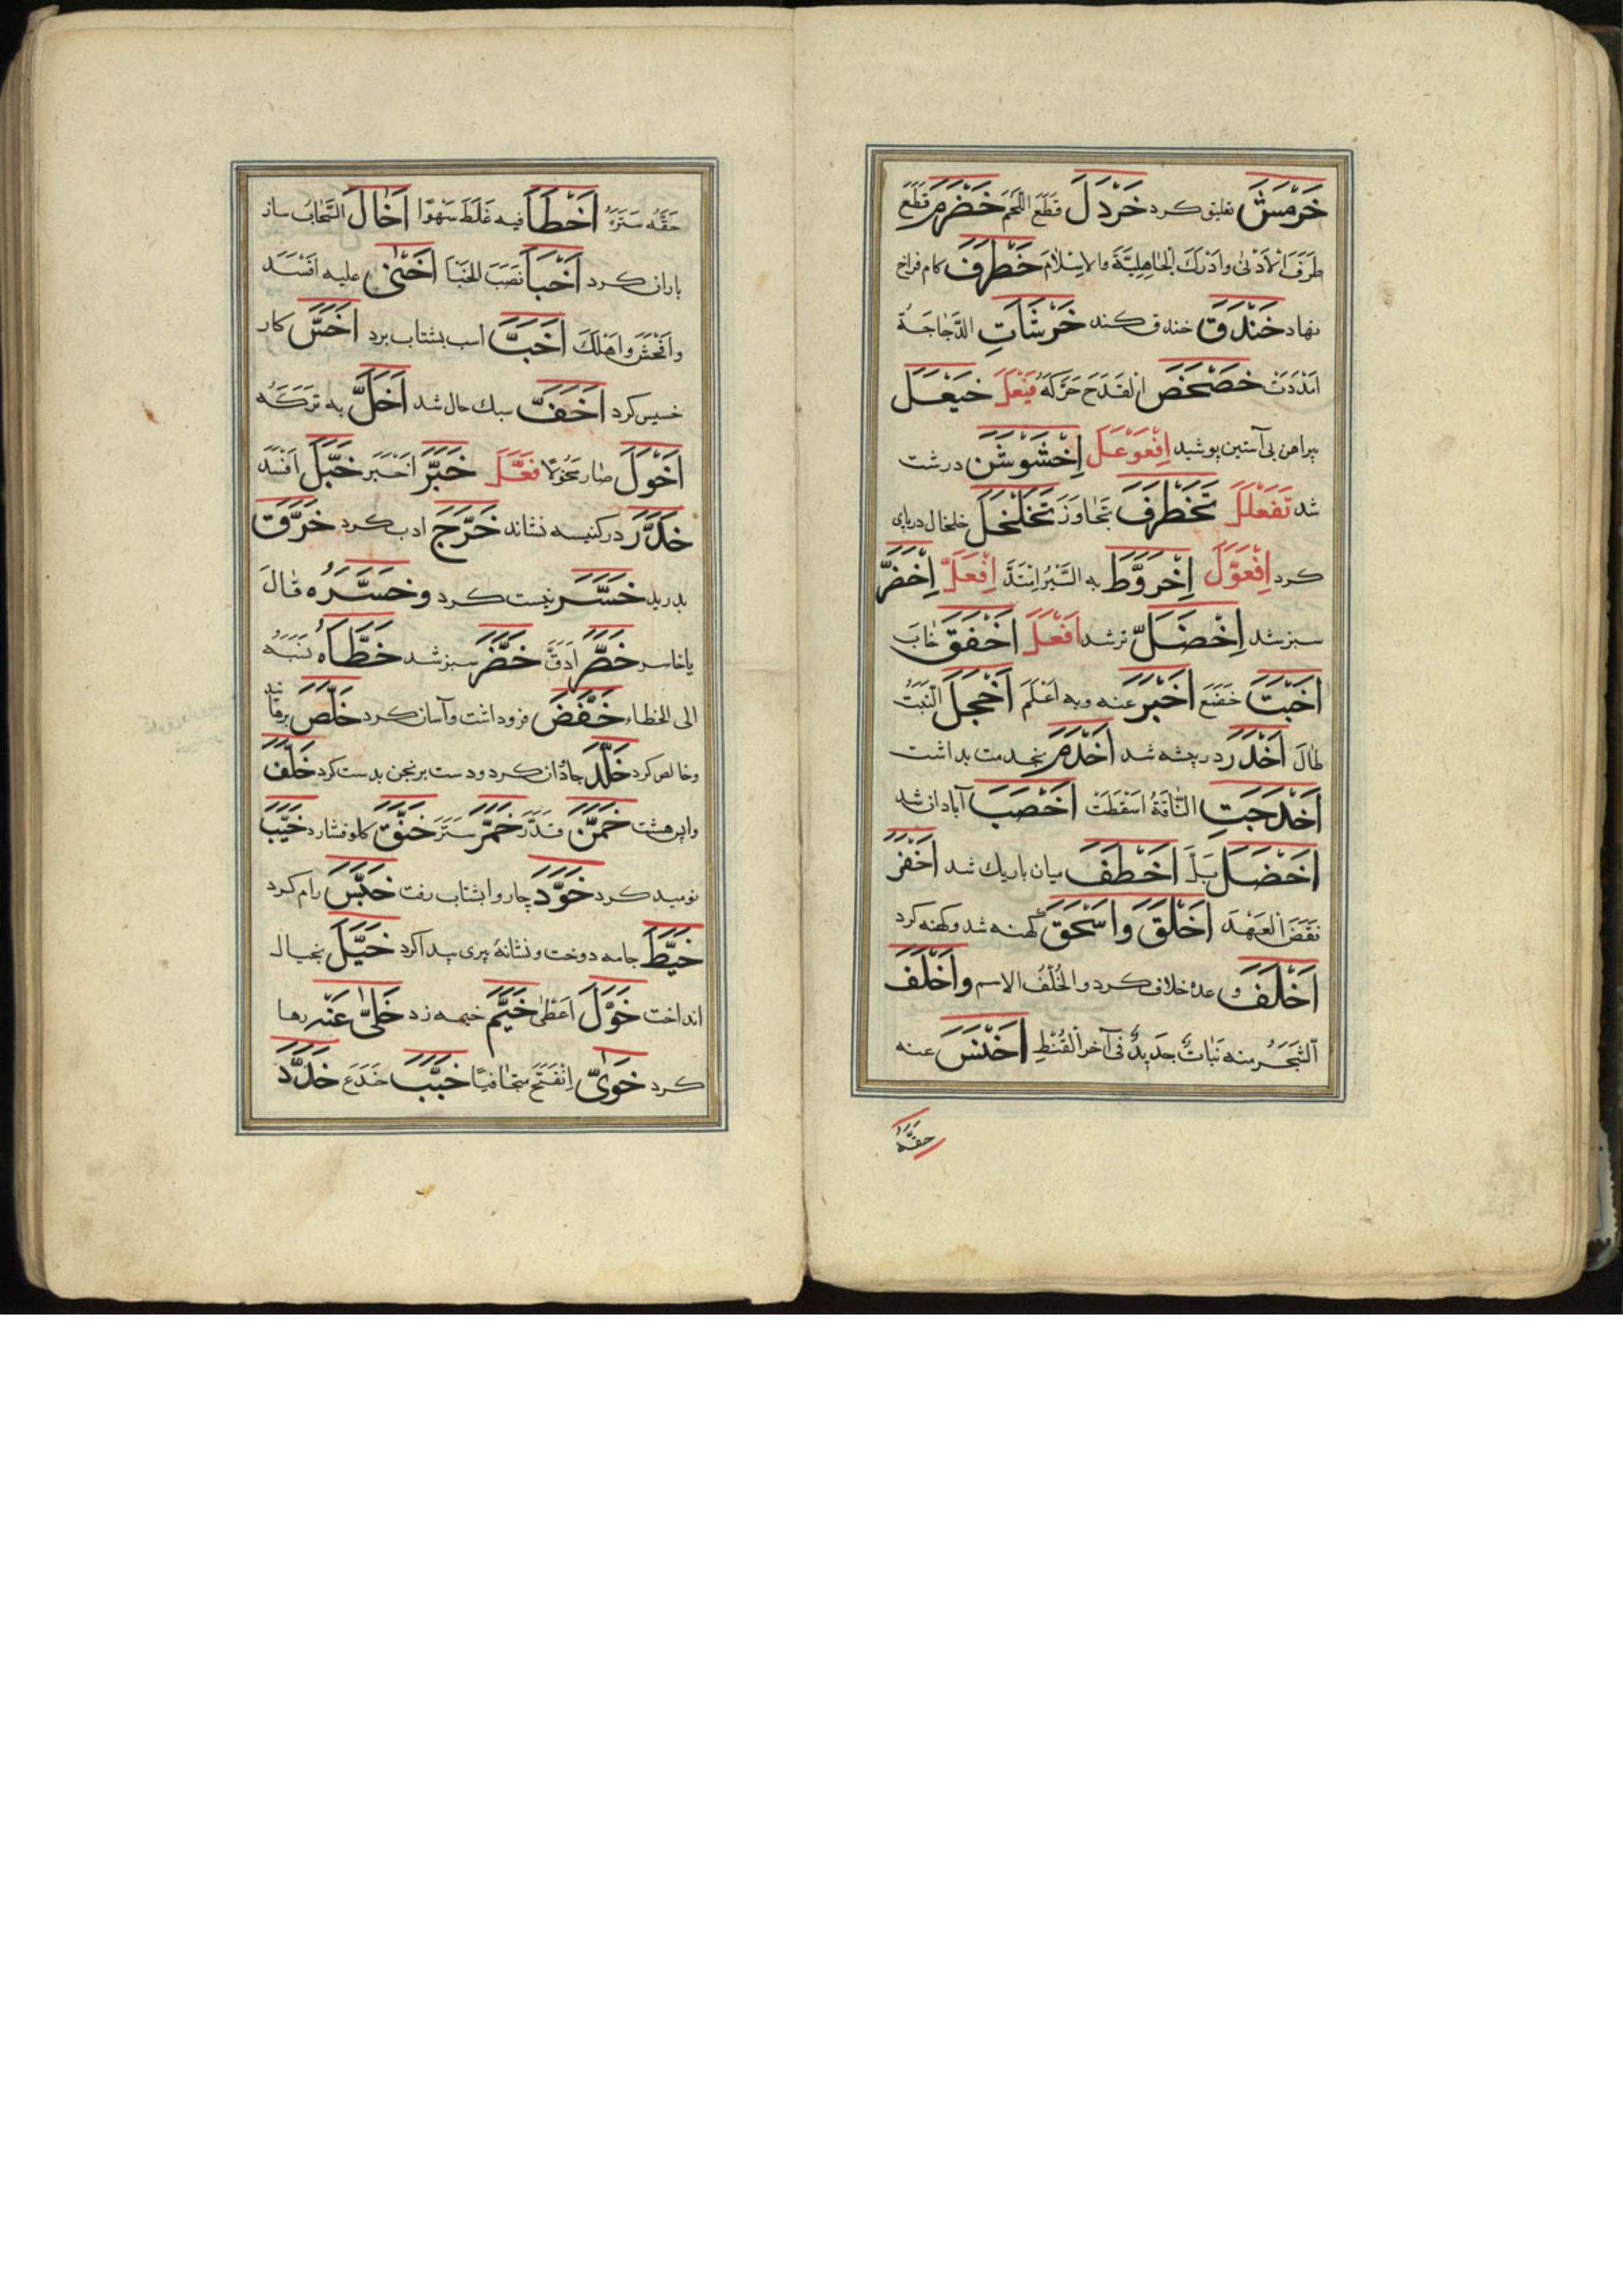 خَرْمَشَ تعلیق کرد خَرْدَلَ قَطَعَ اللَّحْمَ خَضْرَمَ قَطَعَ
طَرَفَ الْأُذُنِ وَاَدْرَكَ الْجَاهِلِيَّةَ وَالاِسْلَامَ خَطْرَفَ کام فراخ
نهاد خَنْدَقَ خندق کند خَرْشَاَتِ الدَّجَاجَةُ
خَضْخَضَ الْقَدَحَ حَرَّكَهُ فَيْعَلَ خَيْعَلَ
پیراهن بی آستین پوشید اِفْعَوْعَلَ اِخْشَوْشَنَ درشت
شد تَفَعْلَلَ تَخَطْرَفَ تَجَاوَزَ تَخَلْخَلَ خلخال در پای
کرد اِفْعَوَّلَ اِخْرَوَّطَ به السَّيْرُ اِمْتَدَّ اِفْعَلَّ اِخْضَرَّ
سبز شد اِخْضَلَّ تر شد اَفْعَلَ اَخْفَقَ خَابَ
اَخْبَتَ خَضَعَ اَخْبَرَ عنه وبه اَعْلَمَ اَخْجَلَ النَّبْتُ
طَالَ اَخْدَرَ در بیشه شد اَخْدَمَ بخدمت بداشت
اَخْدَجَتِ النَّاقَةُ اَسْقَطَتْ اَخْصَبَ آبادان شد
اَخْضَلَ بَلَّ اَخْطَفَ میان باریك شد اَخْفَرَ
نَقَضَ الْعَهْدَ اَخْلَقَ وَاَسْحَقَ کهنه شد وکهنه کرد
اَخْلَفَ وعده خلاف کرد والخُلْفُ الاسم وَاَخْلَفَ
الشَّجَرُ منه نَبَاتٌ جَدِيدٌ فی آخر الْقَيْظِ اَخْنَسَ عنه
حَقَّهُ
حَقَّهُ سَتَرَهُ اَخْطَأَ فيه غَلَطَ سَهْوًا اَخَالَ السَّحَابُ ساز
باران کرد اَخْبَأَ نَصَبَ الخِبَاَ اَخْنٰی عليه اَفْسَدَ
وَاَفْحَشَ وَاَهْلَكَ اَخَبَّ اسب بشتاب برد اَخَسَّ کار
خسیس کرد اَخَفَّ سبك حال شد اَخَلَّ به تَرَكَهُ
اَخْوَلَ صار مُخْوِلًا فَعَّلَ خَبَّرَ اَخْبَرَ خَبَّلَ اَفْسَدَ
خَدَّرَ در کنیسه نشاند خَرَّجَ ادب کرد خَرَّقَ
بدرید خَسَّرَ نیست کرد وخَسَّرَهُ قَالَ
یاخاسر خَصَّرَ اَدَقَّ خَضَّرَ سبز شد خَطَّأَهُ نَسَبَهُ
الی الخطاء خَفَّضَ فرو داشت وآسان کرد خَلَّصَ برهانید
وخالص کرد خَلَّدَ جاودان کرد ودست برنجن بدست کرد خَلَّفَ
واپس هشت خَمَّنَ قَدَّرَ خَمَّرَ سَتَرَ خَنَّقَ کلو فشارد خَيَّبَ
نومید کرد خَوَّدَ چاروا بشتاب رفت خَيَّسَ رام کرد
خَيَّطَ جامه دوخت ونشانهٔ پیری پیدا کرد خَيَّلَ بخیال
انداخت خَوَّلَ اَعْطٰی خَيَّمَ خیمه زد خَلّٰی عَنْه رها
کرد خَوّٰی اِنْفَتَحَ متجافيًا خَبَّبَ خَدَعَ خَدَّدَ